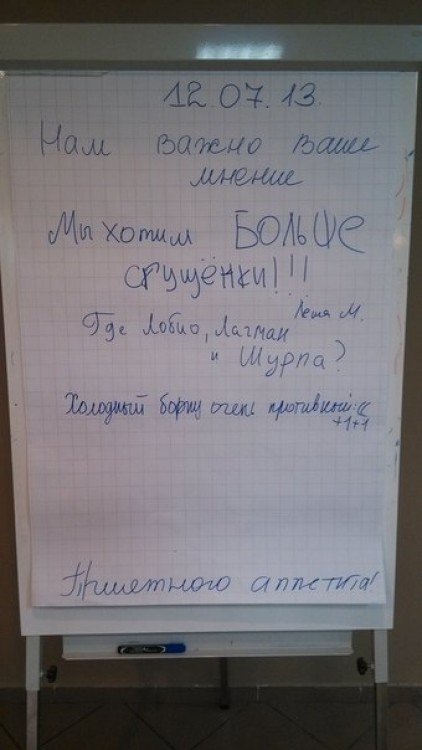 12.07.13.
Нам важно ваше
мнение
Мы хотим БОЛЬШЕ
сгущёнки!!!
Лёша М.
Где Лобио, Лагман
и Шурпа?
Холодный борщ очень противный :((
+1+1
Приятного аппетита!